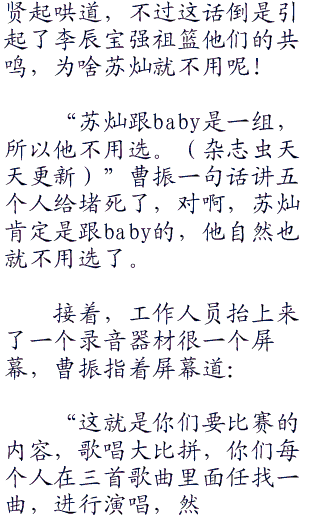 贤起哄道，不过这话倒是引
起了李辰宝强祖篮他们的共
鸣，为啥苏灿就不用呢！
“苏灿跟baby是一组，
所以他不用选。（杂志虫天
天更新）”曹振一句话讲五
个人给堵死了，对啊，苏灿
肯定是跟baby的，他自然也
就不用选了。
接着，工作人员抬上来
了一个录音器材很一个屏
幕，曹振指着屏幕道：
“这就是你们要比赛的
内容，歌唱大比拼，你们每
个人在三首歌曲里面任找一
曲，进行演唱，然